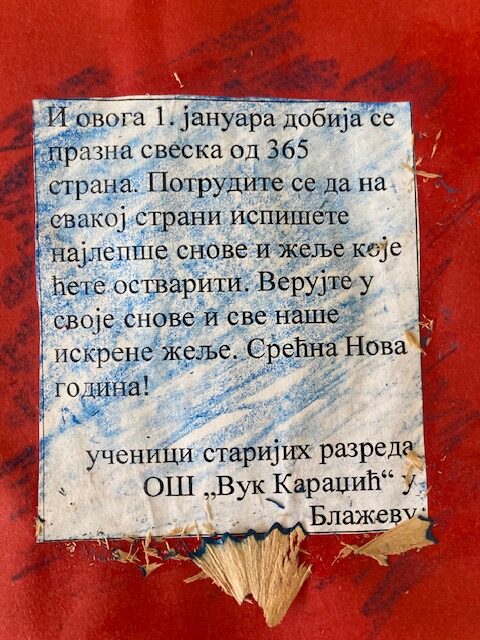 И овога 1. јануара добија се
празна свеска од 365
страна. Потрудите се да на
свакој страни испишете
најлепше снове и жеље које
ћете остварити. Верујте у
своје снове и све наше
искрене жеље. Срећна Нова
година!
ученици старијих разреда
ОШ „Вук Караџић“ у
Блажеву